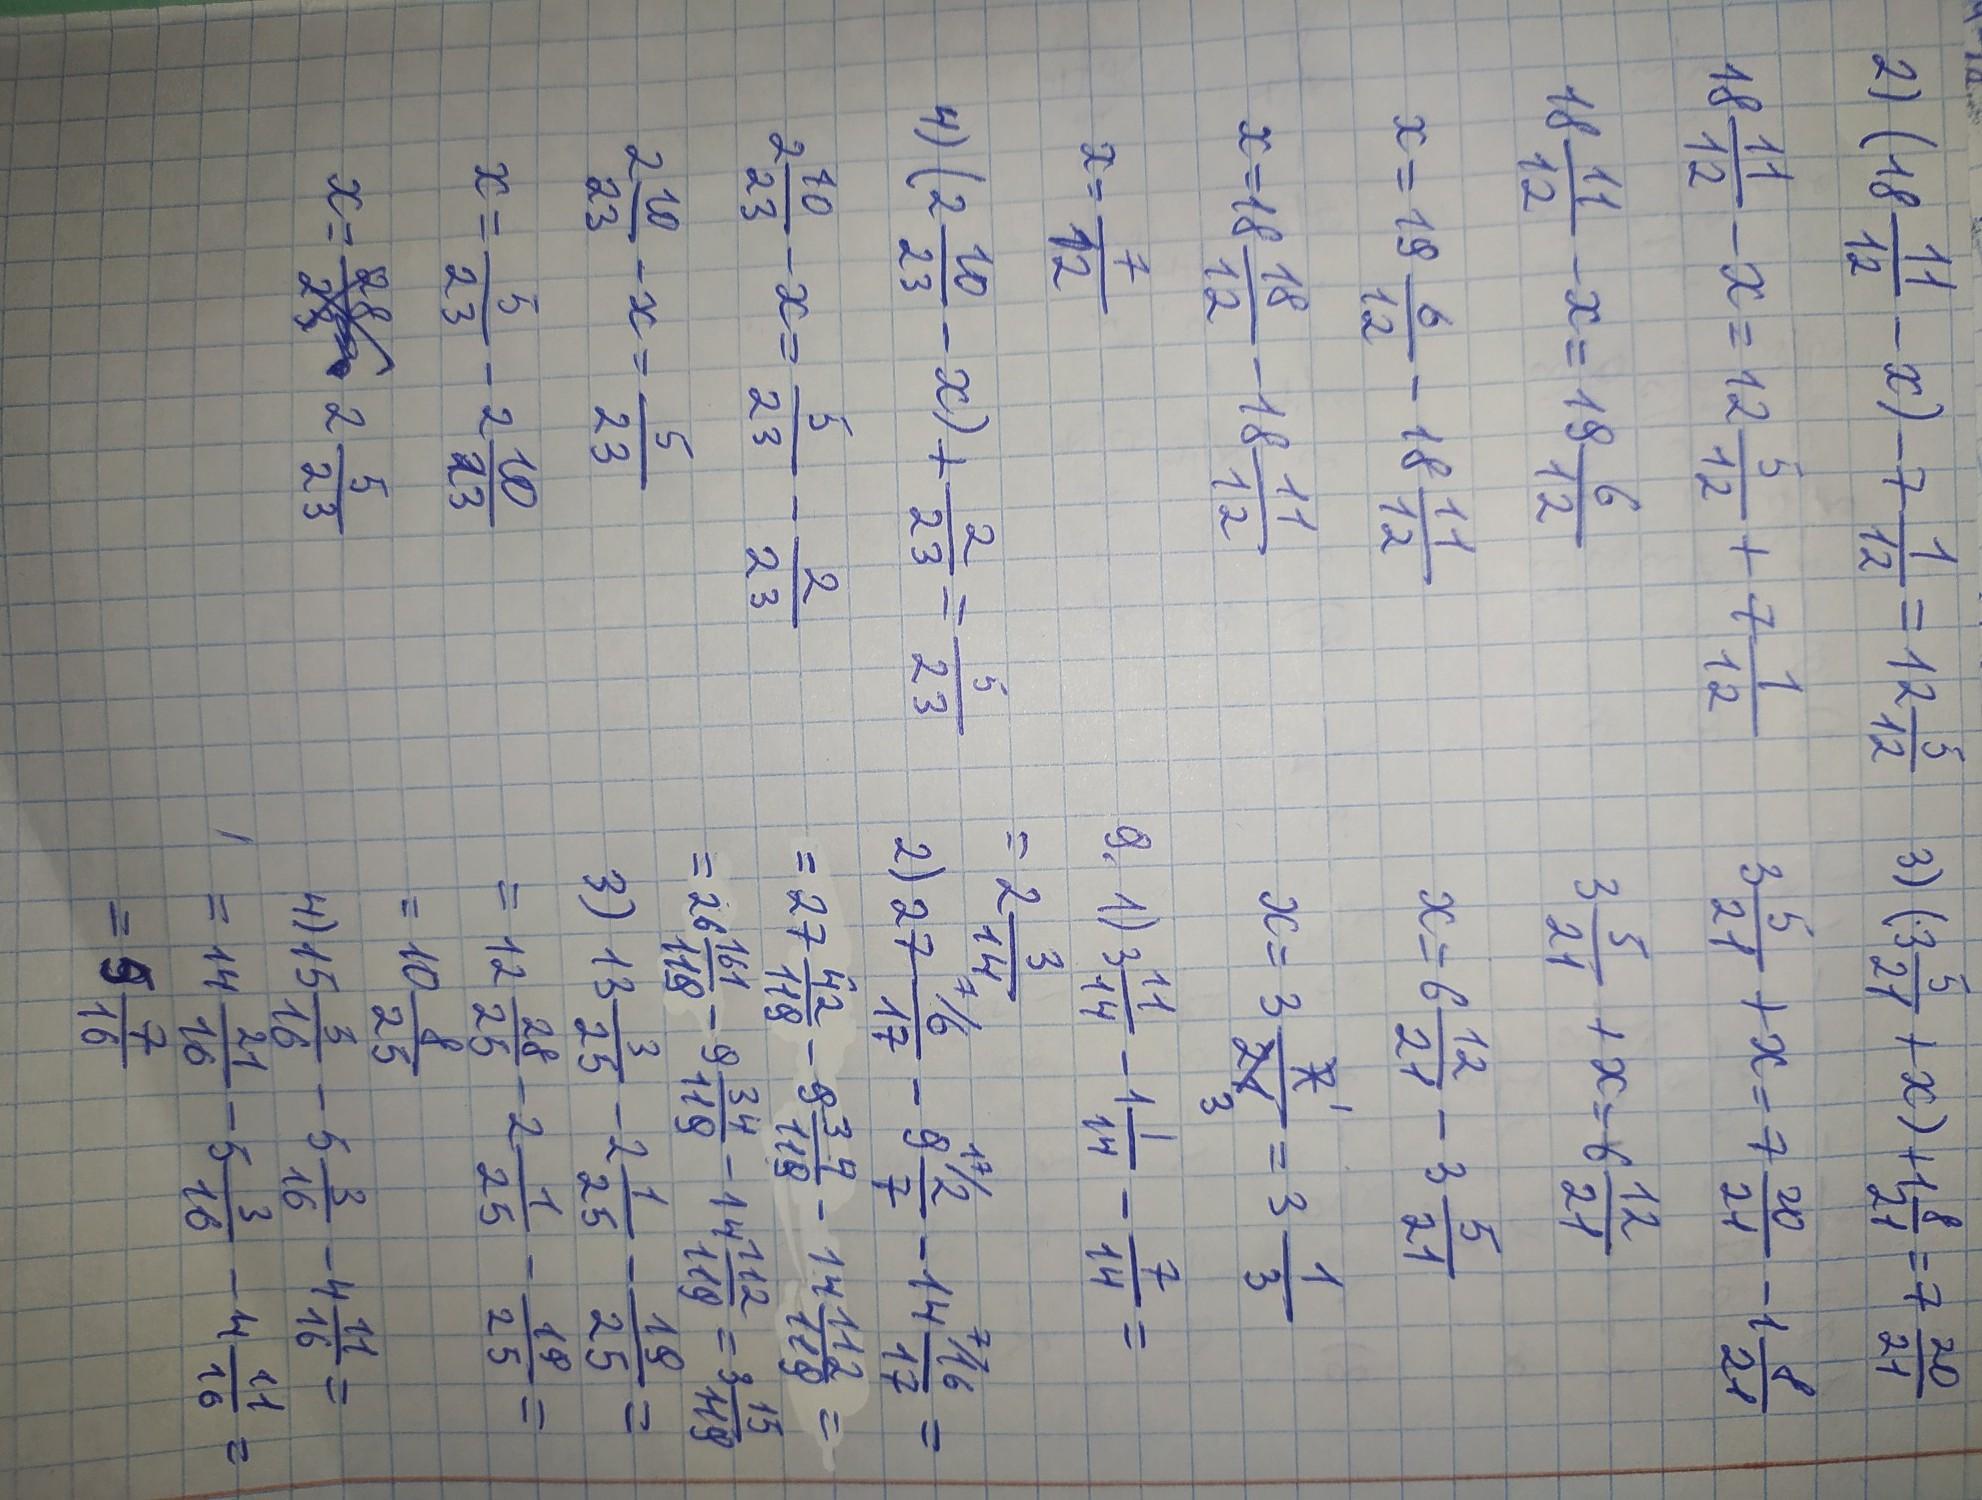 2) (18 11/12 - x) - 7 1/12 = 12 5/12
18 11/12 - x = 12 5/12 + 7 1/12
18 11/12 - x = 19 6/12
x = 19 6/12 - 18 11/12
x = 18 18/12 - 18 11/12
x = 7/12
4) (2 10/23 - x) + 2/23 = 5/23
2 10/23 - x = 5/23 - 2/23
2 10/23 - x = 5/23
x = 5/23 - 2 10/23
x = 2 5/23
3) (3 5/21 + x) + 1 8/21 = 7 20/21
3 5/21 + x = 7 20/21 - 1 8/21
3 5/21 + x = 6 12/21
x = 6 12/21 - 3 5/21
x = 3 7/21 = 3 1/3
9. 1) 3 11/14 - 1 1/14 - 7/14 =
= 2 3/14
2) 27 6/17 - 9 2/7 - 14 16/17 =
= 27 42/119 - 9 34/119 - 14 112/119 =
= 26 161/119 - 9 34/119 - 14 112/119 = 3 15/119
3) 13 3/25 - 2 1/25 - 19/25 =
= 12 28/25 - 2 1/25 - 19/25 =
= 10 8/25
4) 15 3/16 - 5 3/16 - 4 11/16 =
= 14 21/16 - 5 3/16 - 4 11/16 =
= 9 7/16